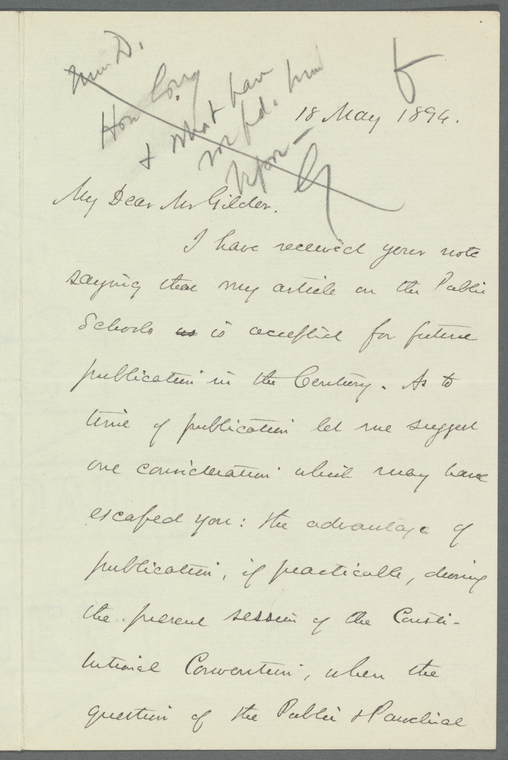 Mr D.
How long
& what have
18 May 1894.
My Dear Mr Gilder.
I have received your note
saying that my article on the Public
Schools is accepted for future
publication in the Century. As to
time of publication let me suggest
one consideration which may have
escaped you: the advantage of
publication, if practicable, during
the present session of the Consti-
tutional Convention, when the
question of the Public & Parochial